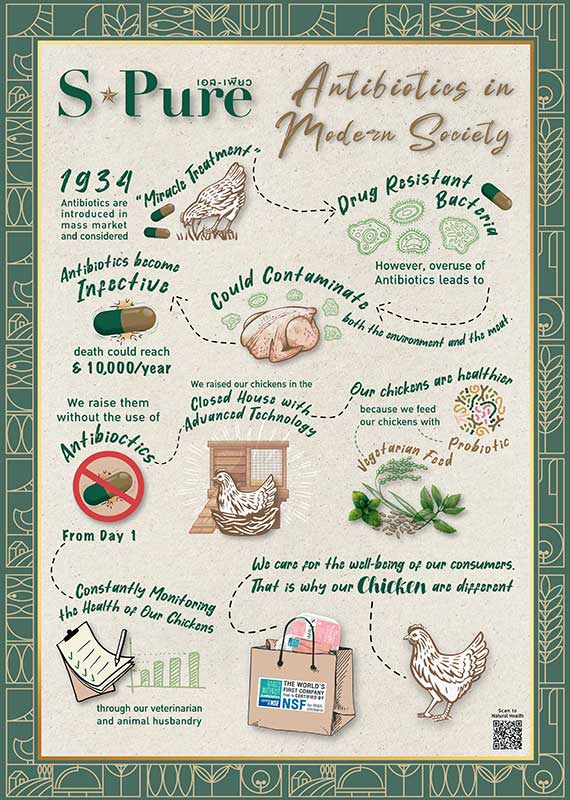 เอส-เพียว
S Pure
Antibiotics in
Modern Society
1934
Antibiotics are
introduced in
mass market
and considered
"Miracle Treatment"
Drug Resistant
Bacteria
However, overuse of
Antibiotics leads to
Could Contaminate
both the environment and the meat.
Antibiotics become
Infective
death could reach
& 10,000/year
We raise them
without the use of
Antibioctics
From Day 1
We raised our chickens in the
Closed House with
Advanced Technology
Our chickens are healthier
because we feed
our chickens with
Probiotic
Vegetarian Food
Constantly Monitoring
the Health of Our Chickens
through our veterinarian
and animal husbandry
We care for the well-being of our consumers.
That is why our Chicken are different
THE WORLD'S
FIRST COMPANY
that is CERTIFIED BY
NSF
NSF
Scan to
Natural Health